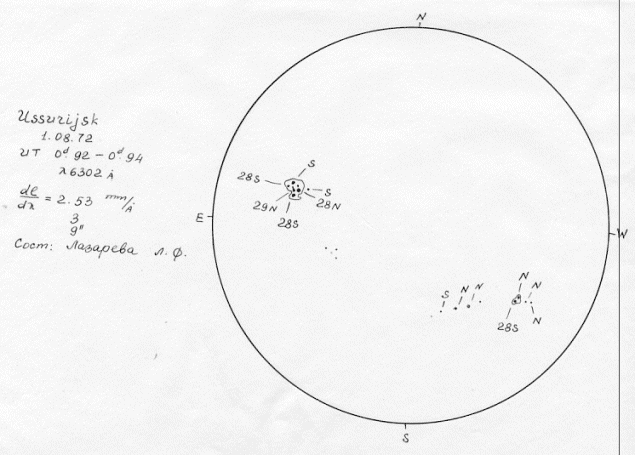 Ussurijsk
1.08.72
UT 0ᵈ.92 – 0ᵈ.94
λ 6302 Å
dl/dλ = 2.53 mm/Å
3
9"
Сост: Лазарева Л. Ф.
N
S
28S
S
29N
28N
28S
E
W
N
N
S
N
N
N
28S
S